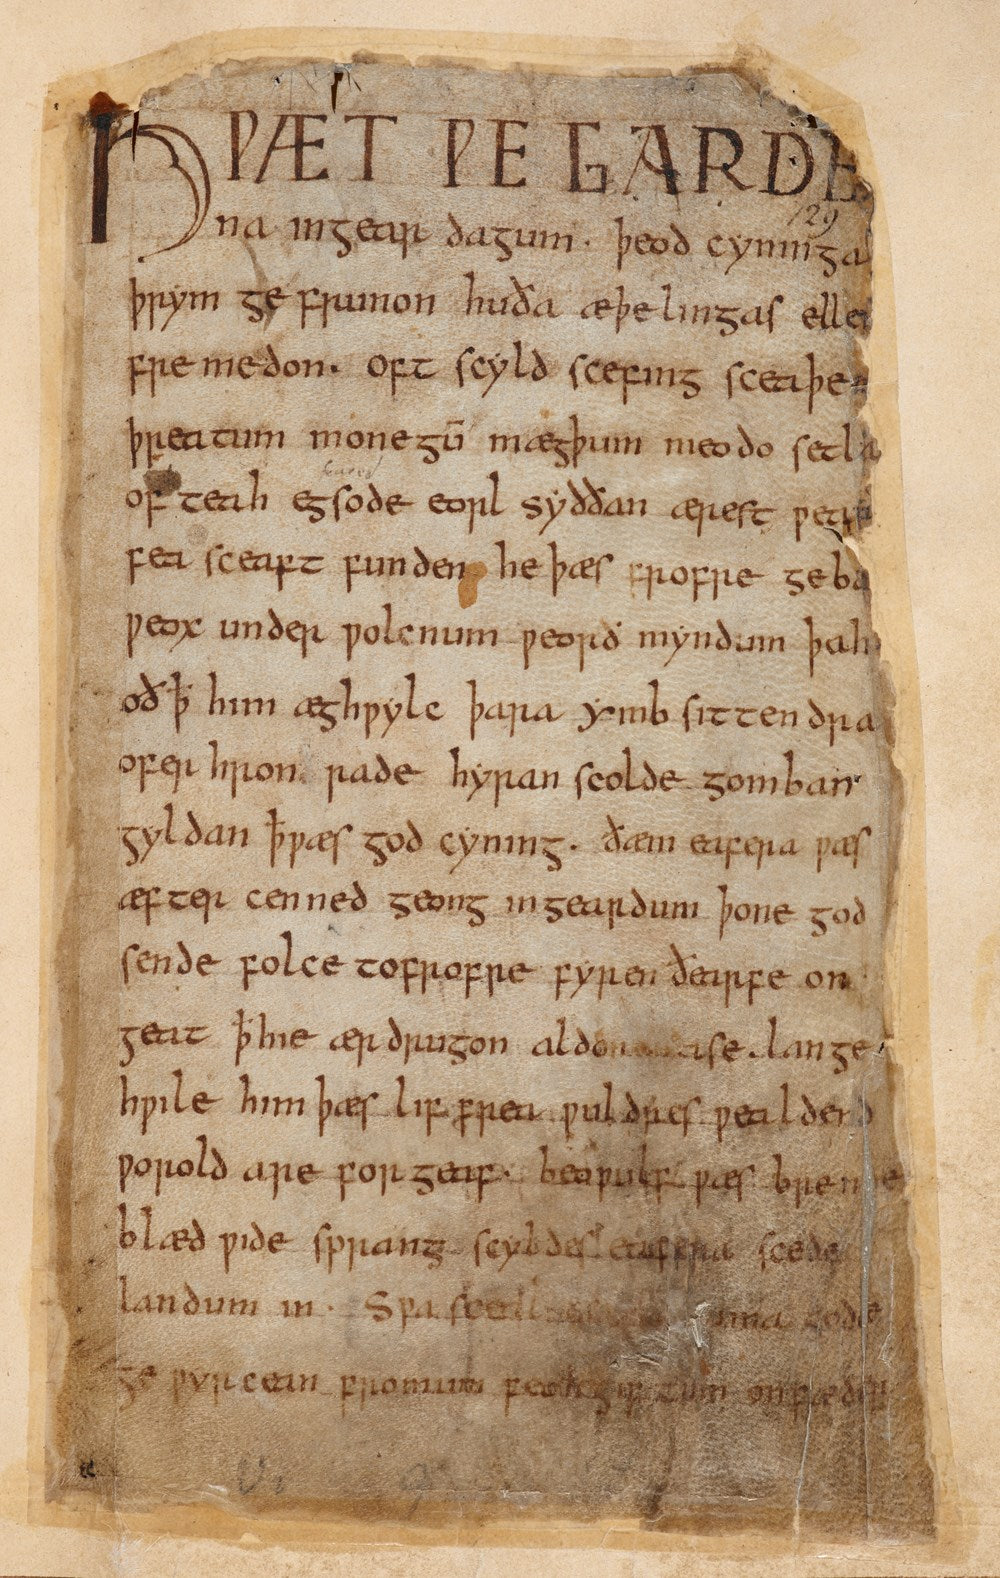 HǷÆT ǷE GARDE
na ingear dagum · þeod cyninga
þrym ge frunon huða æþelingas elle
fre medon · oft scyld scefing sceaþe
þreatum monegū mægþum meodo setla
of teah egsode eorl syððan ærest ƿear
fea sceaft funden he þæs frofre geba
ƿeox under ƿolcnum ƿeorð myndum þah
oðꝥ him æghƿylc þara ymb sittendra
ofer hron rade hyran scolde gomban
gyldan ꝥƿæs god cyning · ðæm eafera ƿæs
æfter cenned geong ingeardum þone god
sende folce tofrofre fyren ðearfe on
geat ꝥhie ær drugon aldo ase · lange
hƿile him þæs lif frea ƿuldres ƿealdend
ƿorold are for geaf · beoƿulf ƿæs breme
blæd ƿide sprang scyldes eafera scede
landum in · Sƿa sceal ma gode
ge ƿyrcean fromum feoh giftum on fæder
129